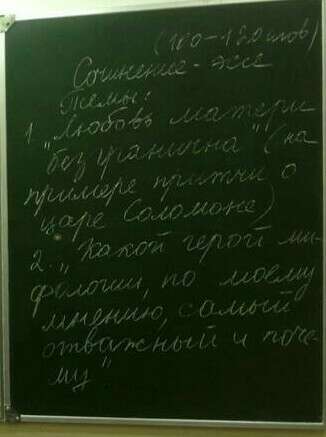 (100-120 слов)
Сочинение-эссе
Темы:
1. „Любовь матери
безгранична" (на
примере притчи о
царе Соломоне)
2. „Какой герой ми-
фологии, по моему
мнению, самый
отважный и поче-
му"